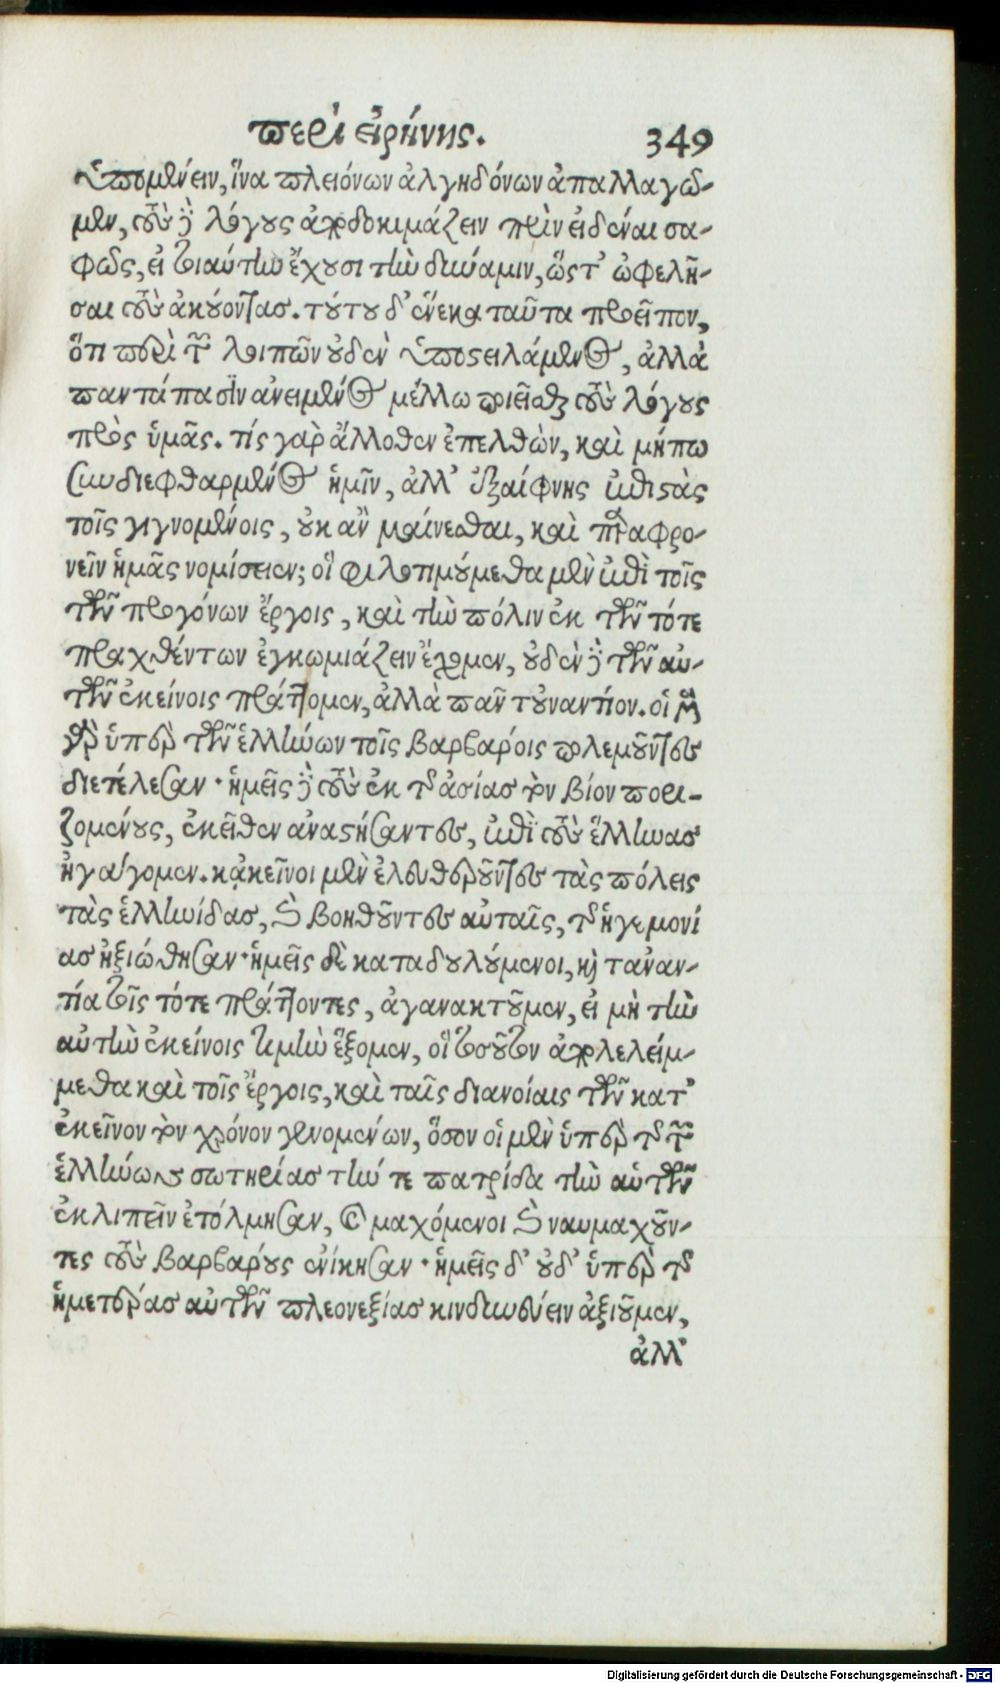 περὶ εἰρήνης. 349
ὑπομένειν, ἵνα πλειόνων ἀλγηδόνων ἀπαλλαγῶ-
μεν, τοὺς δὲ λόγους ἀποδοκιμάζειν πρὶν εἰδέναι σα-
φῶς, εἰ τοιαύτην ἔχουσι τὴν δύναμιν, ὥστ' ὠφελῆ-
σαι τοὺς ἀκούοντας. τούτου δ' ἕνεκα ταῦτα προεῖπον,
ὅτι περὶ τῶν λοιπῶν οὐδὲν ὑποστειλάμενος, ἀλλὰ
παντάπασιν ἀνειμένος μέλλω ποιεῖσθαι τοὺς λόγους
πρὸς ὑμᾶς. τίς γὰρ ἄλλοθεν ἐπελθὼν, καὶ μήπω
συνδιεφθαρμένος ἡμῖν, ἀλλ' ἐξαίφνης ἐπιστὰς
τοῖς γιγνομένοις, οὐκ ἂν μαίνεσθαι, καὶ παραφρο-
νεῖν ἡμᾶς νομίσειεν; οἳ φιλοτιμούμεθα μὲν ἐπὶ τοῖς
τῶν προγόνων ἔργοις, καὶ τὴν πόλιν ἐκ τῶν τότε
πραχθέντων ἐγκωμιάζειν ἔχομεν, οὐδὲν δὲ τῶν αὐ-
τῶν ἐκείνοις πράττομεν, ἀλλὰ πᾶν τοὐναντίον. οἱ μὲν
γὰρ ὑπὲρ τῶν ἑλλήνων τοῖς βαρβάροις πολεμοῦντες
διετέλεσαν· ἡμεῖς δὲ τοὺς ἐκ τῆς ἀσίας τὸν βίον πορι-
ζομένους, ἐκεῖθεν ἀναστήσαντες, ἐπὶ τοὺς ἕλληνας
ἠγάγομεν. κἀκεῖνοι μὲν ἐλευθεροῦντες τὰς πόλεις
τὰς ἑλληνίδας, καὶ βοηθοῦντες αὐταῖς, τῆς ἡγεμονί
ας ἠξιώθησαν· ἡμεῖς δὲ καταδουλούμενοι, καὶ τἀναν-
τία τοῖς τότε πράττοντες, ἀγανακτοῦμεν, εἰ μὴ τὴν
αὐτὴν ἐκείνοις τιμὴν ἕξομεν, οἳ τοσοῦτον ἀπολελείμ-
μεθα καὶ τοῖς ἔργοις, καὶ ταῖς διανοίαις τῶν κατ'
ἐκεῖνον τὸν χρόνον γενομένων, ὅσον οἱ μὲν ὑπὲρ τῆς τῶν
ἑλλήνων σωτηρίας τήν τε πατρίδα τὴν αὑτῶν
ἐκλιπεῖν ἐτόλμησαν, καὶ μαχόμενοι καὶ ναυμαχοῦν-
τες τοὺς βαρβάρους ἐνίκησαν· ἡμεῖς δ' οὐδ' ὑπὲρ τῆς
ἡμετέρας αὐτῶν πλεονεξίας κινδυνεύειν ἀξιοῦμεν,
ἀλλ'
Digitalisierung gefördert durch die Deutsche Forschungsgemeinschaft - DFG